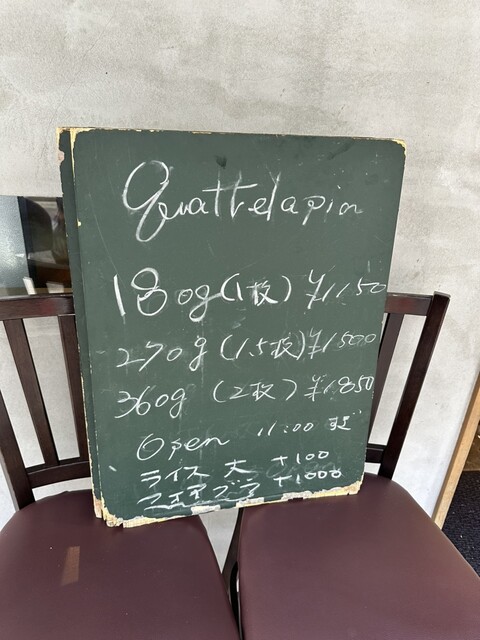 Quattrelapin
180g (1枚) ¥1150
270g (1.5枚) ¥1500
360g (2枚) ¥1850
Open 11:00 すぎ
ライス 大 +100
フォアグラ +1000